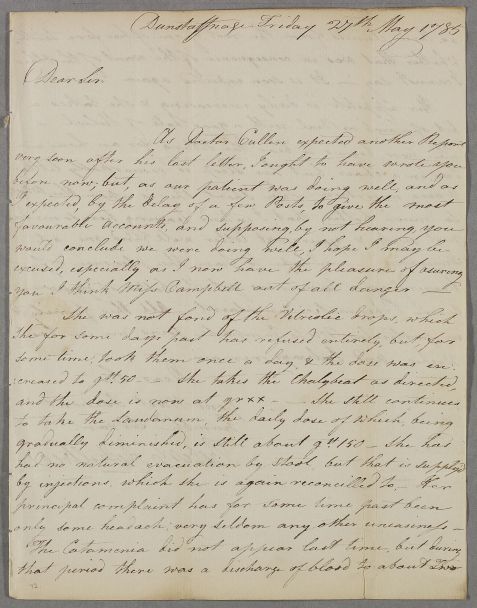 Dunstaffnage Friday 27th May 1785
Dear Sir
As Doctor Cullen expected another Report
very soon after his last letter, I ought to have wrote you
before now, but, as our patient was doing well, and as
I expected, by the delay of a few Posts, to give the most
favourable accounts, and supposing, by not hearing, you
would conclude we were doing well, I hope I may be
excused, especially as I now have the pleasure of asuring
you I think Miss Campbell out of all danger —
She was not fond of the Vitriolic drops, which
She for some days past has refused entirely, but, for
some time, took them once a day, & the dose was in:
creased to gtt. 50 — She takes the Chalybeat as directed,
and the dose is now at grxx — She still continues
to take the Laudanum the daily dose of which, being
gradually diminished, is still about gtt 150 — She has
had no natural evacuation by stool, but that is supplyed
by injections, which she is again reconcilled to — Her
principal complaint has for some time past been
only some headach, very seldom any other uneasiness —
The Catamenia did not appear last time, but during
that period there was a discharge of blood to about two